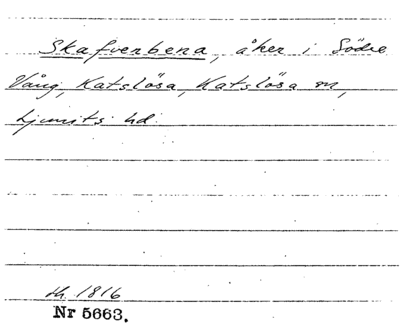 Skafvenbena, åker i Södre
Vång, Katslösa, Katslösa sn,
Ljunits hd.
sk. 1816
Nr 5663.